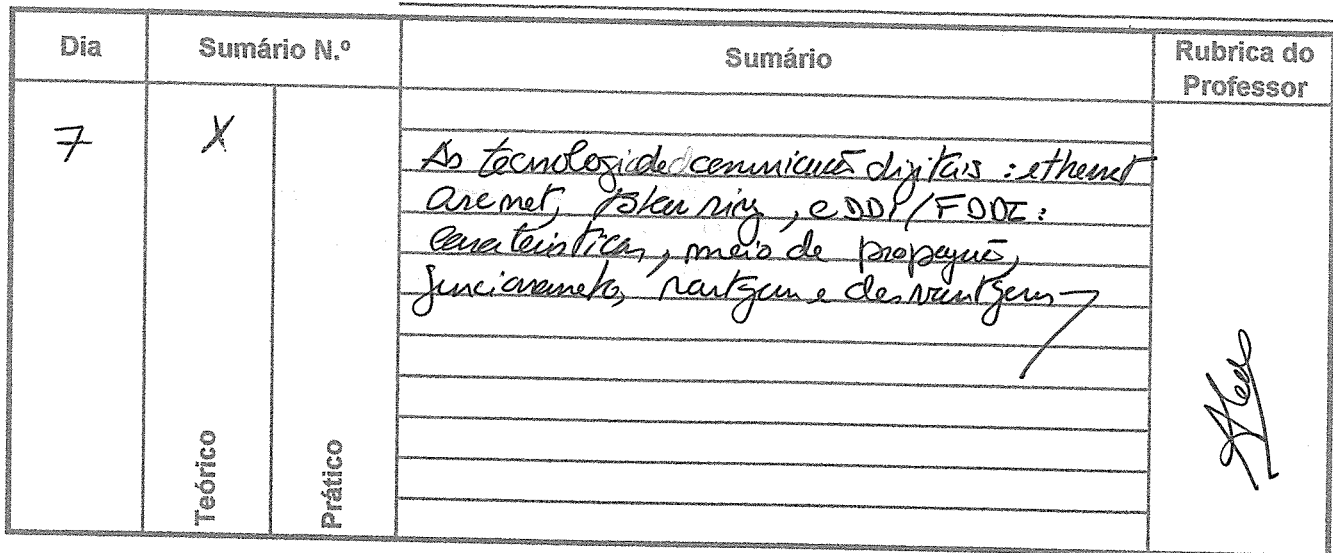 Dia
Sumário N.º
Sumário
Rubrica do
Professor
7
X
As tecnologia de comunicação digitais : ethernet
arcnet, token ring, e DDI/FDDI:
caracteristicas, meio de propagação,
funcionamento, vantagem e desvantagens
Teórico
Prático